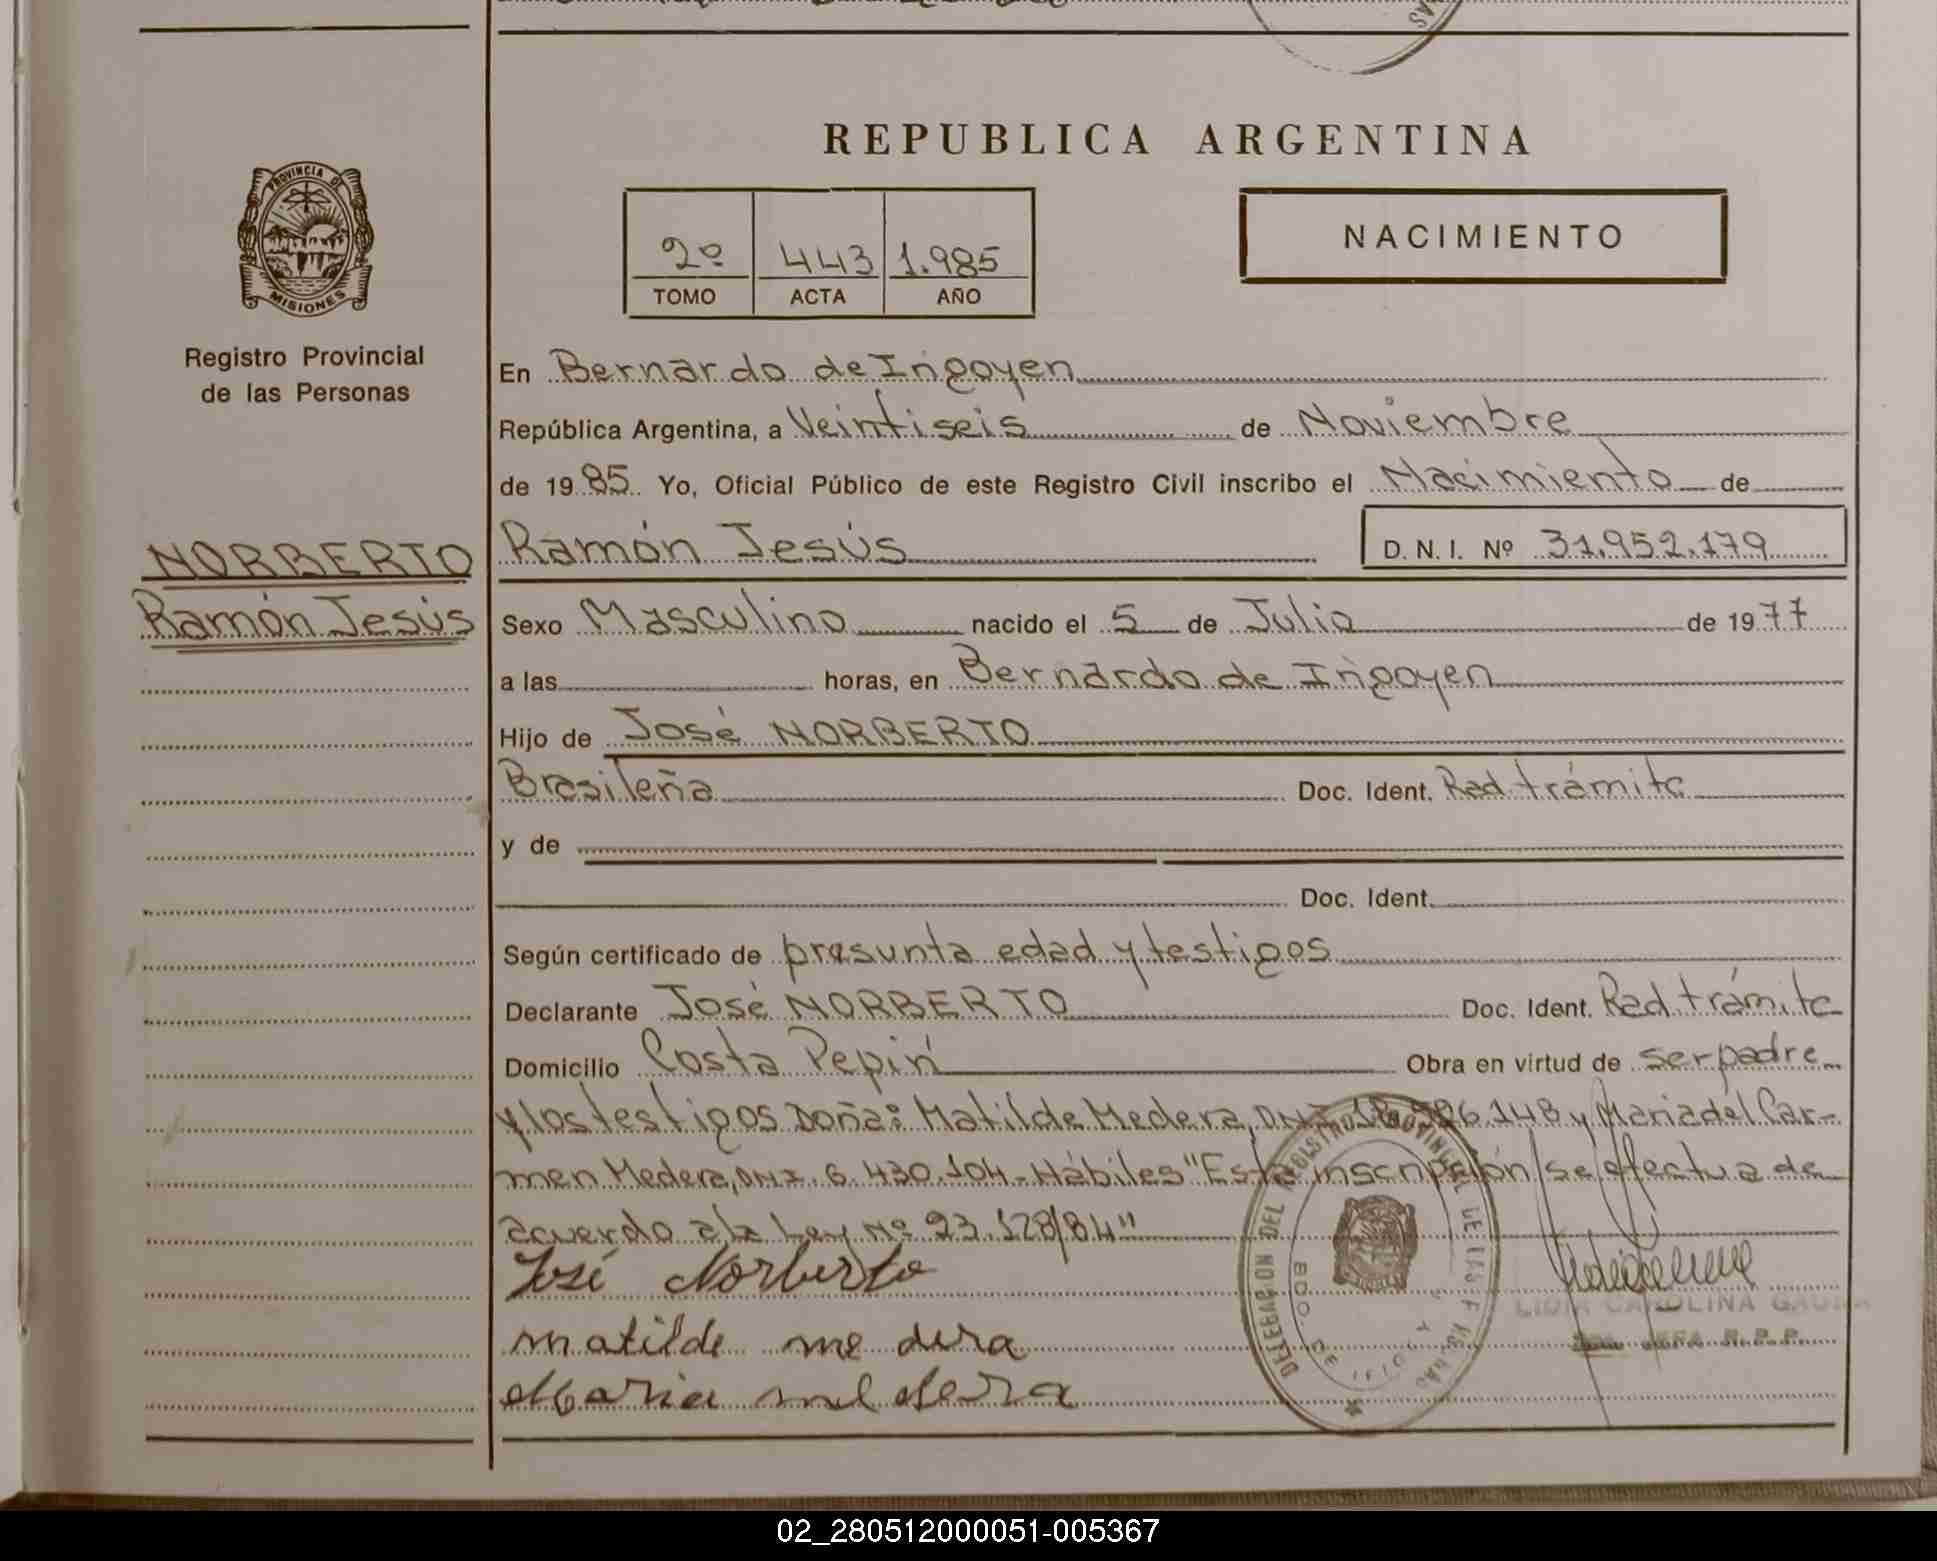 REPUBLICA ARGENTINA
PROVINCIA DE
MISIONES
2º 443 1.985
TOMO ACTA AÑO
NACIMIENTO
Registro Provincial
de las Personas
En Bernardo de Irigoyen
República Argentina, a Veintiseis de Noviembre
de 1985. Yo, Oficial Público de este Registro Civil inscribo el Nacimiento de
NORBERTO
Ramón Jesús
Ramón Jesús D. N. I. Nº 31.952.179
Sexo Masculino nacido el 5 de Julio de 1977
a las horas, en Bernardo de Irigoyen
Hijo de José NORBERTO
Brasileña Doc. Ident. Rad. trámite
y de
Doc. Ident.
Según certificado de presunta edad y testigos
Declarante José NORBERTO Doc. Ident. Rad. trámite
Domicilio Costa Pepirí Obra en virtud de ser padre
y los testigos Doña: Matilde Medera, DNI y Maria del Car-
men Medera, DNI. 6.430.104- Hábiles "Esta inscripción se efectua de
acuerdo a la Ley Nº 23.128/84"
José Norberto
matilde me dera
Maria me dera
DELEGACION DEL REGISTRO PROVINCIAL DE LAS PERSONAS
BDO. DE
LIDIA CAROLINA
JEFA R.P.P.
02_280512000051-005367